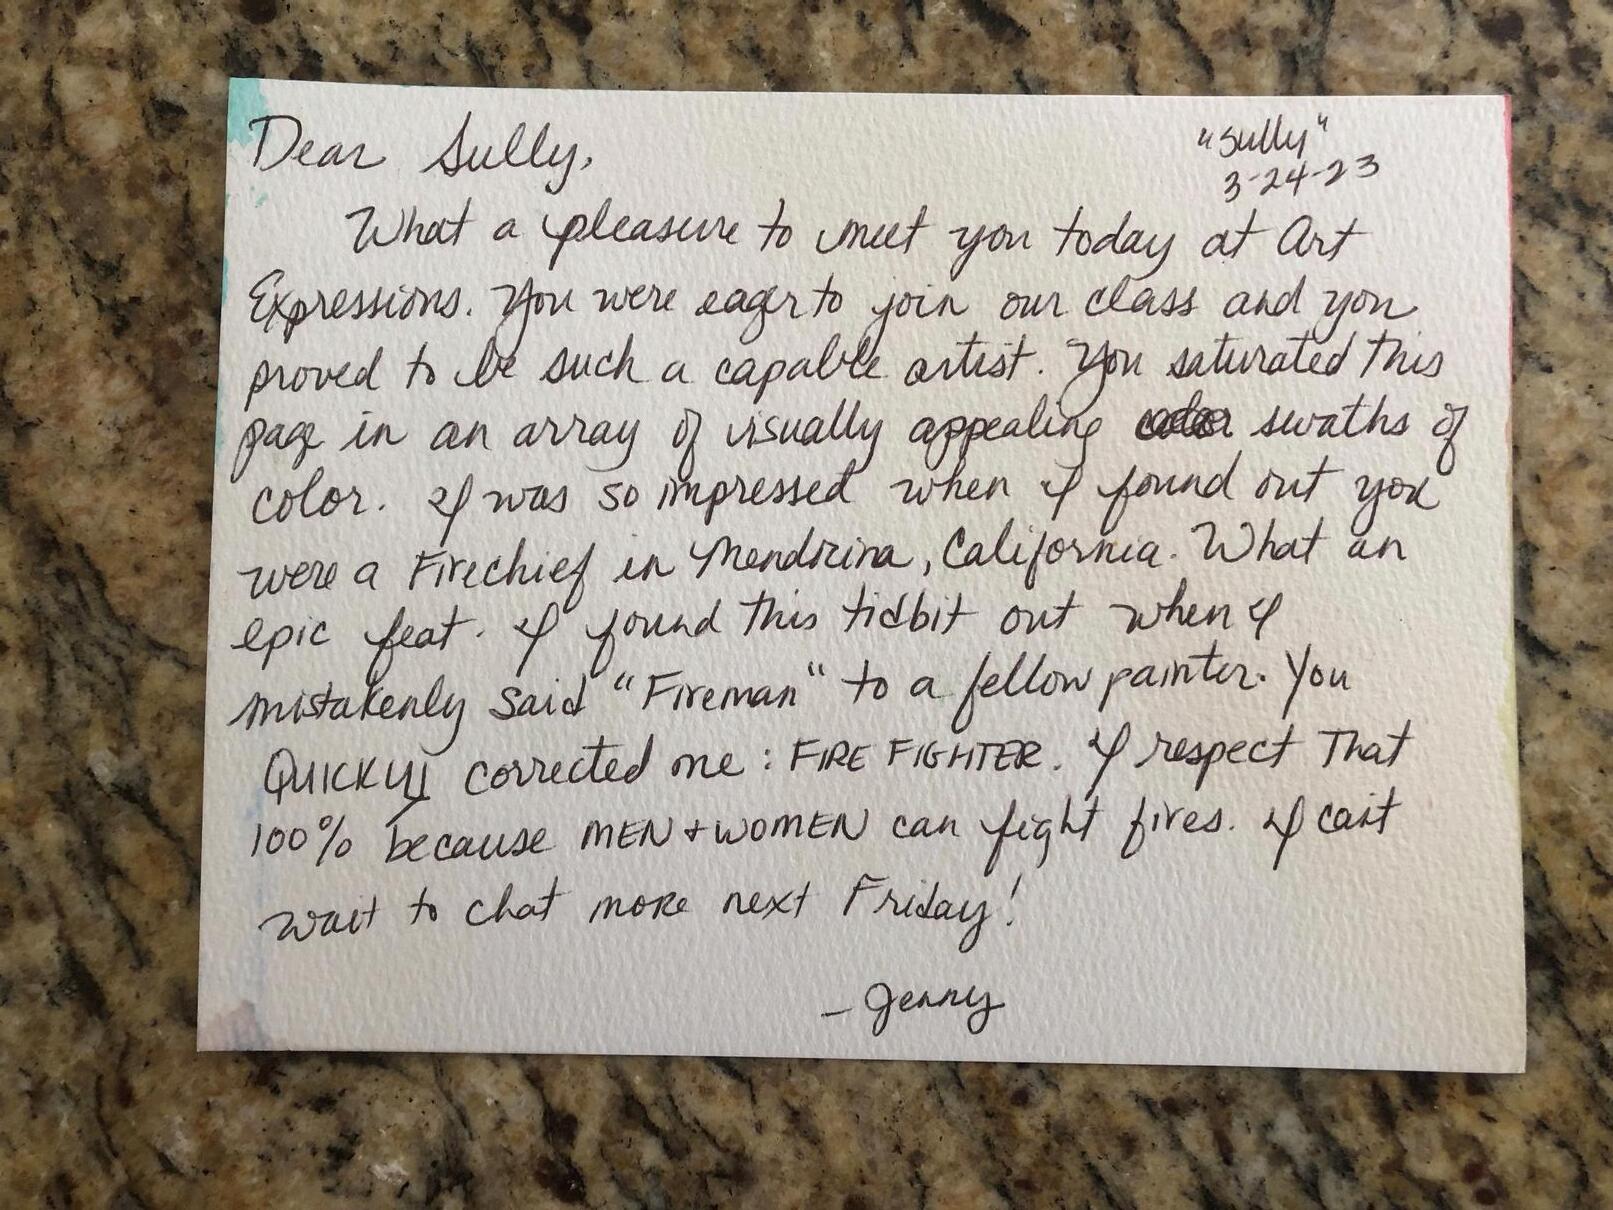 Dear Sully,
"Sully"
3-24-23
What a pleasure to meet you today at Art
Expressions. You were eager to join our class and you
proved to be such a capable artist. You saturated this
page in an array of visually appealing swaths of
color. I was so impressed when I found out you
were a Firechief in Mendicina, California. What an
epic feat. I found this tidbit out when I
mistakenly said "Fireman" to a fellow painter. You
QUICKLY corrected me: FIRE FIGHTER. I respect That
100% because MEN + WOMEN can fight fires. I can't
wait to chat more next Friday!
- Jenny